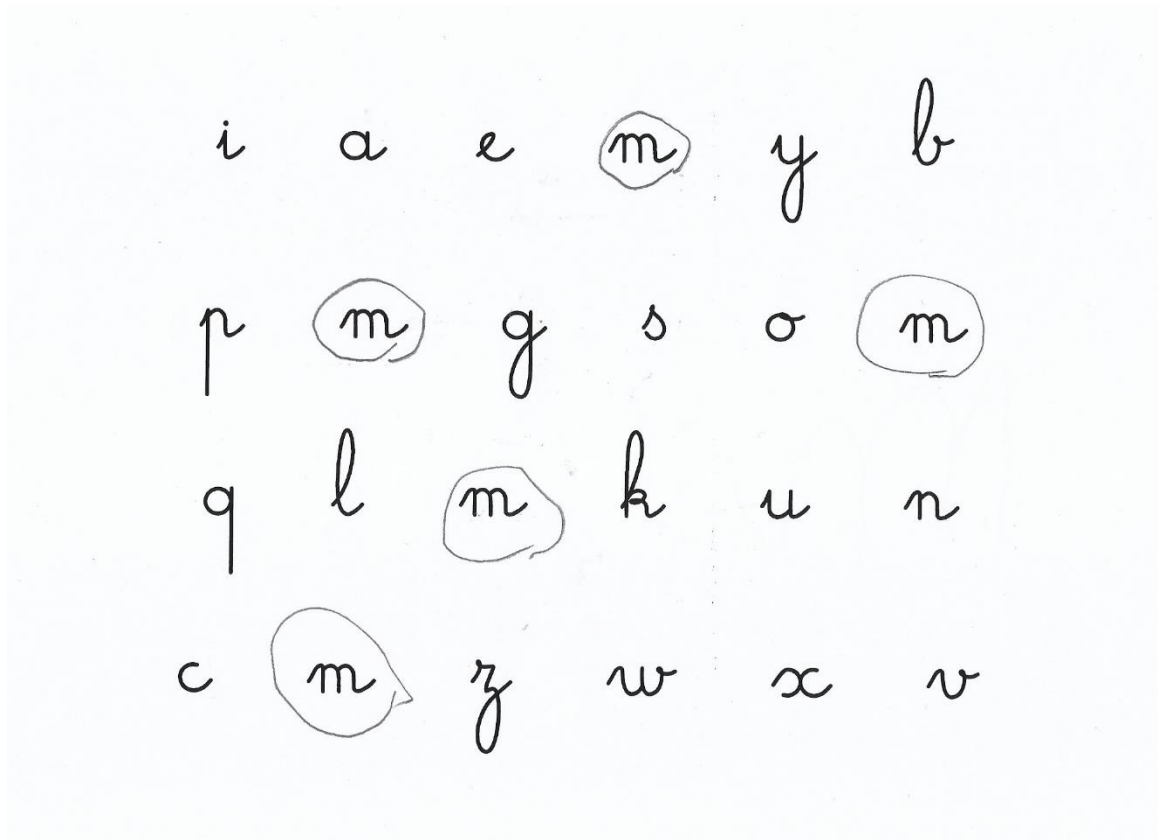 i a e m y b
p m g s o m
q l m k u n
c m z w x v